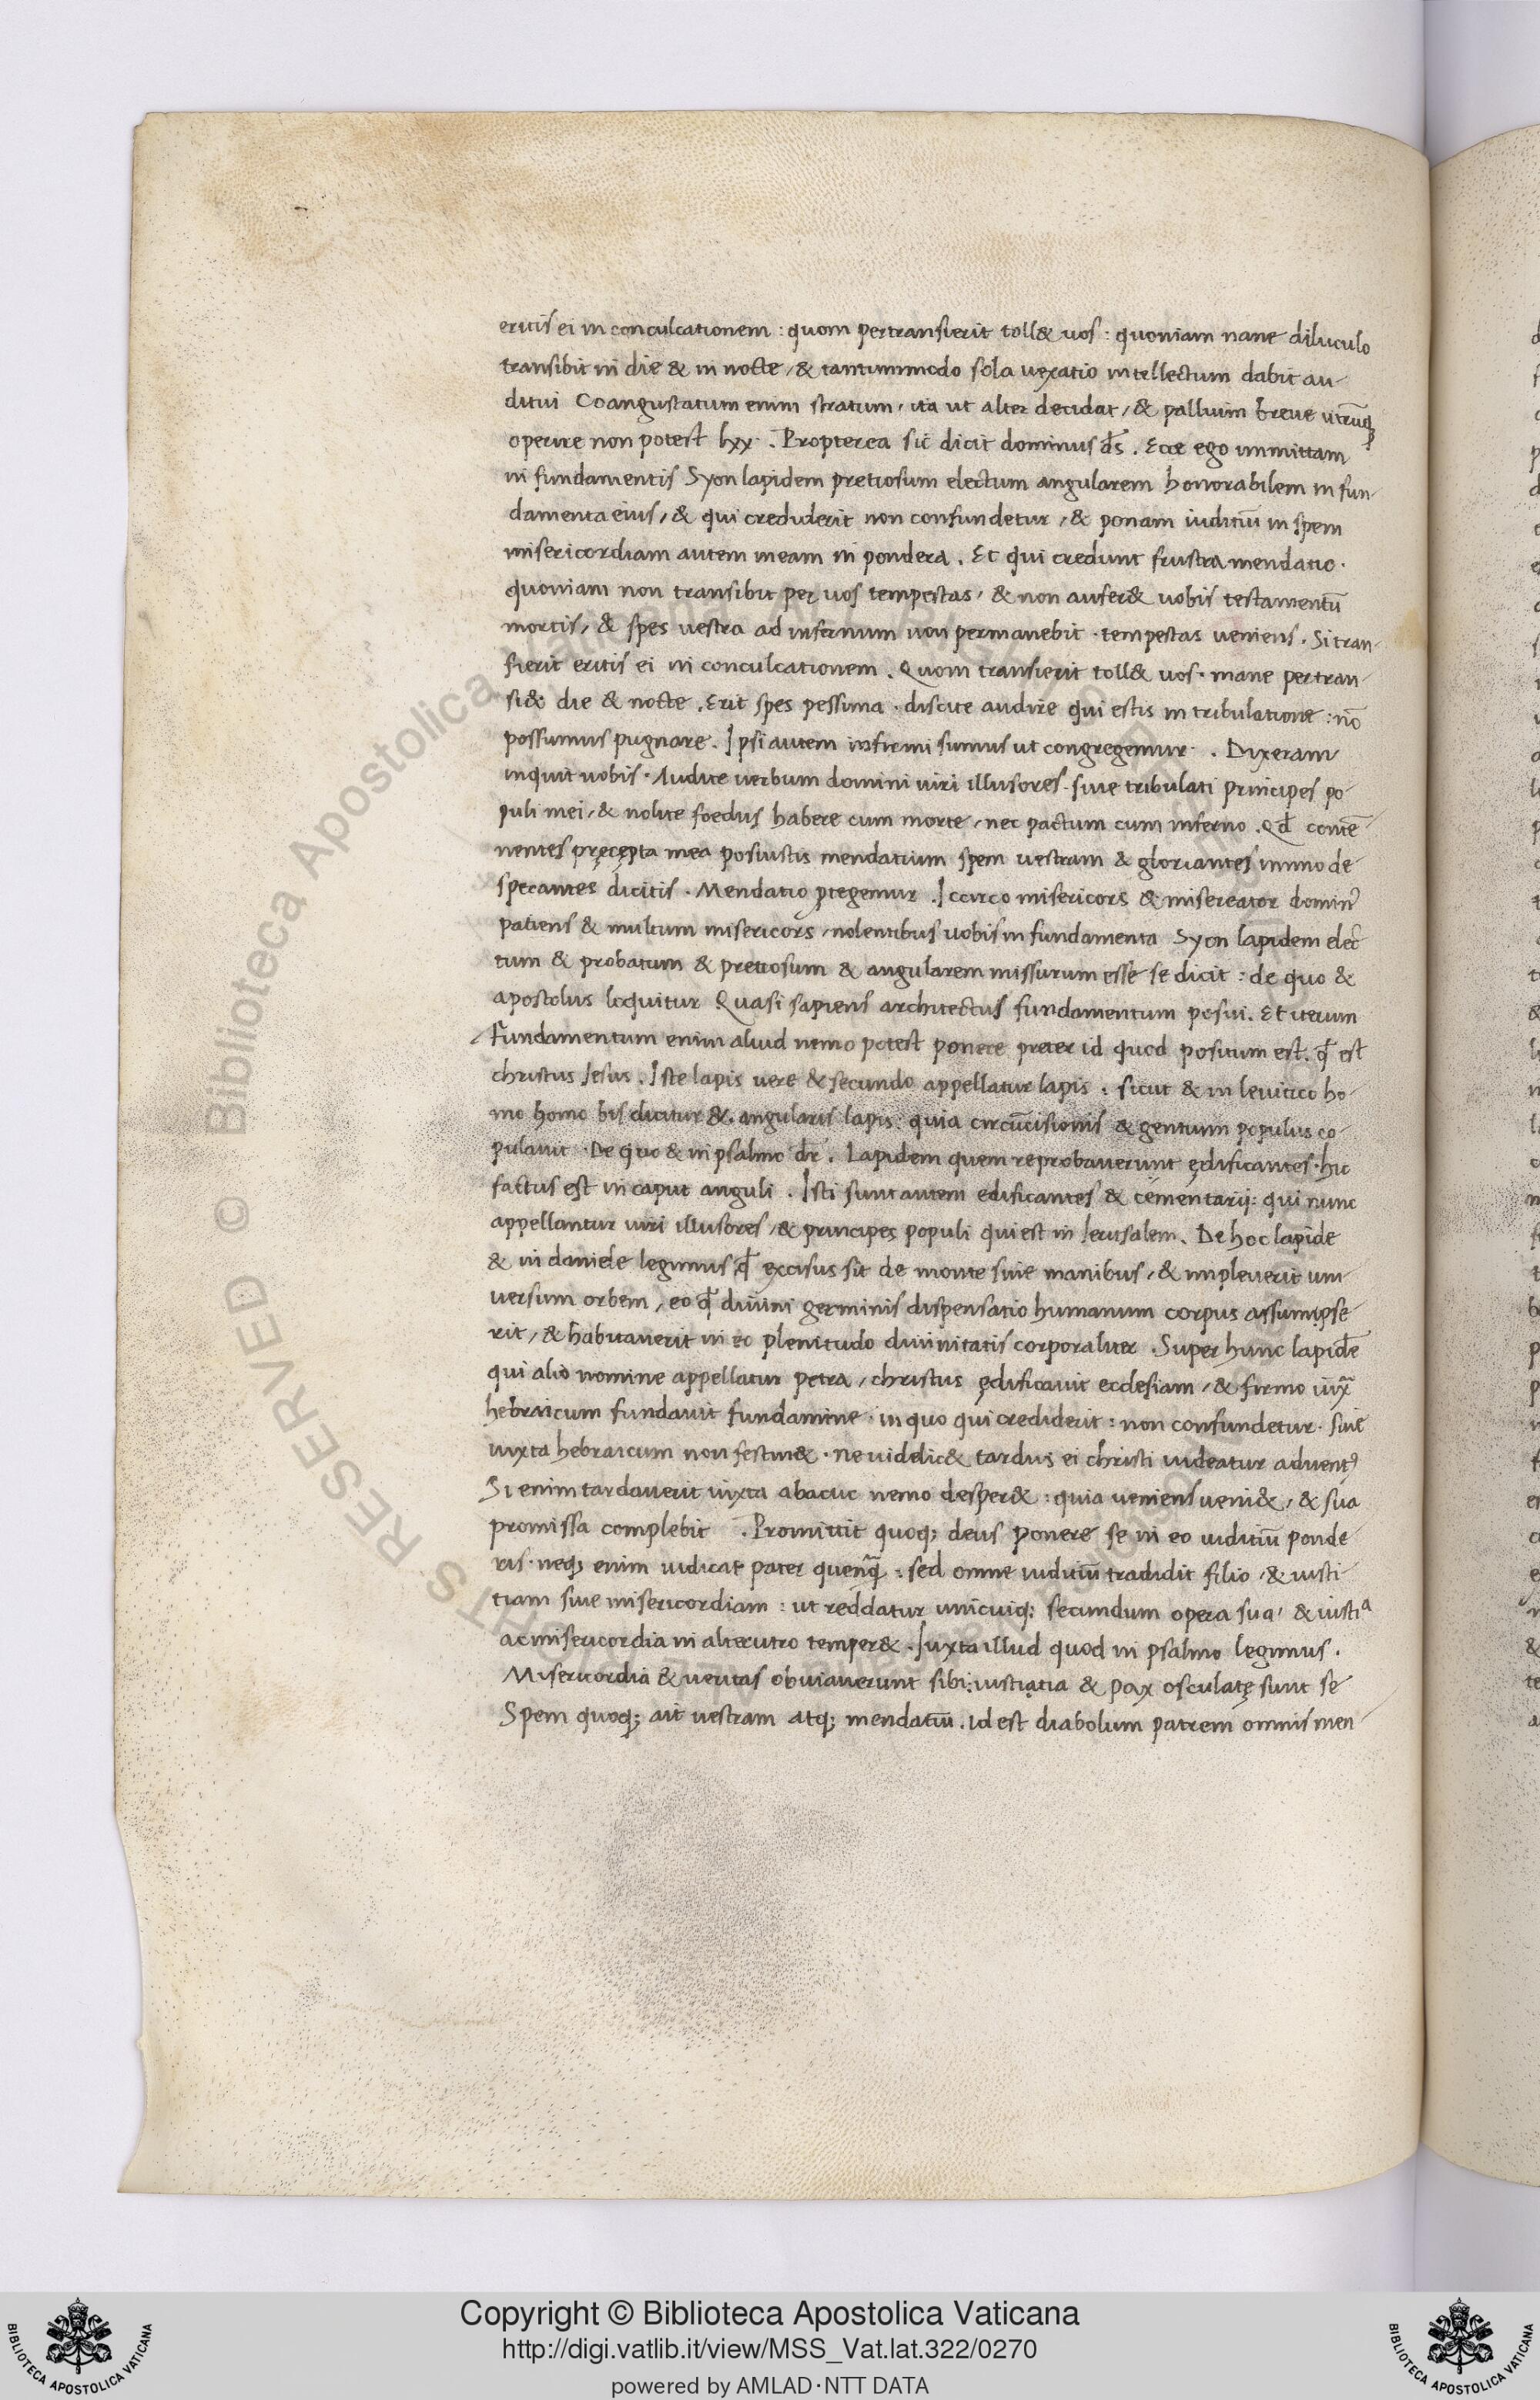 eritis ei in conculcationem : quom pertransierit toll& uos : quoniam nane diluculo
transibit in die & in nocte / & tantummodo sola uexatio intellectum dabit au-
ditui Coangustatum enim stratum / ita ut alter decidat / & pallium breue utrūq;
operire non potest lxx . Propterea sic dicit dominus d̄s . Ecce ego immittam
in fundamentis Syon lapidem pretiosum electum angularem honorabilem in fun-
damenta eius / & qui crediderit non confundetur / & ponam iuditiū in spem
misericordiam autem meam in pondera . Et qui credunt frustra mendatio .
quoniam non transibit per uos tempestas / & non aufer& uobis testamentū
mortis / & spes uestra ad infernum non permanebit . tempestas ueniens . Si tran-
sierit eritis ei in conculcationem . Quom transierit toll& uos . mane pertran-
si& die & nocte . Erit spes pessima . discite audire qui estis in tribulatione : nō
possumus pugnare . Ipsi autem infirmi sumus ut congregemur . Dixeram
inquit uobis . Audite uerbum domini uiri illusores . siue tribulati principes po-
puli mei / & nolite foedus habere cum morte / nec pactum cum inferno . Qd̄ contē-
nentes pręcepta mea posuistis mendatium spem uestram & gloriantes immo de-
sperantes dicitis . Mendatio ptegemur . Iccirco misericors & misereator domin9
patiens & multum misericors / nolentibus uobis in fundamenta Syon lapidem elec
tum & probatum & pretiosum & angularem missurum esse se dicit : de quo &
apostolus loquitur Quasi sapiens architectus fundamentum posui . Et iterum
Fundamentum enim aliud nemo potest ponere preter id quod positum est . q̄ est
christus Iesus . Iste lapis uere & secundo appellatur lapis : sicut & in leuitico ho-
mo homo bis dicitur & angularis lapis : quia circūcisionis & gentium populus co-
pulauit . De quo & in psalmo dr̄ . Lapidem quem reprobauerunt ędificantes . hic
factus est in caput anguli . Isti sunt autem edificantes & cementarij : qui nunc
appellantur uiri illusores / & principes populi qui est in Ierusalem . De hoc lapide
& in daniele legimus q̄ excisus sit de monte sine manibus / & impleuerit uni-
uersum orbem / eo q̄ diuini germinis dispensatio humanum corpus assumpse-
rit / & habitauerit in eo plenitudo diuinitatis corporaliter . Super hunc lapidē
qui alio nomine appellatur petra / christus ędificauit ecclesiam / & firmo iux̄
hebraicum fundauit fundamine . in quo qui crediderit : non confundetur . siue
iuxta hebraicum non festin& . ne uidelic& tardus ei christi uideatur aduent9
Si enim tardauerit iuxta abacuc nemo desper& : quia ueniens ueni& / & sua
promissa complebit . Promittit quoq; deus ponere se in eo iuditiū ponde-
ris . neq; enim iudicat pater quenq̄ : sed omne iuditiū tradidit filio / & iusti-
tiam siue misericordiam : ut reddatur unicuiq; secundum opera sua / & iustia
ac misericordia in alterutro temper& . Iuxta illud quod in psalmo legimus .
Misericordia & ueritas obuiauerunt sibi : iustiatia & pax osculatę sunt se
Spem quoq; ait uestram atq; mendatiū . id est diabolum patrem omnis men
Copyright © Biblioteca Apostolica Vaticana
http://digi.vatlib.it/view/MSS_Vat.lat.322/0270
powered by AMLAD·NTT DATA
BIBLIOTECA APOSTOLICA VATICANA
BIBLIOTECA APOSTOLICA VATICANA